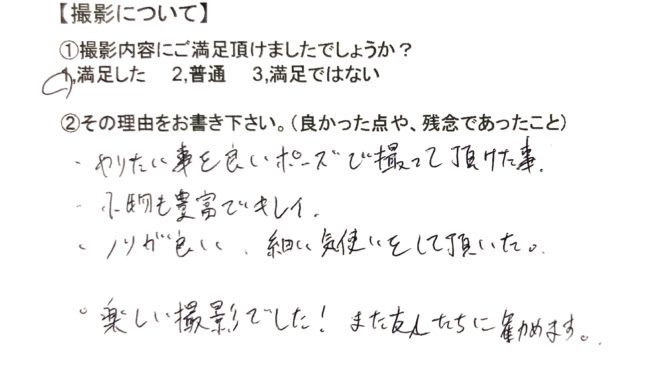 【撮影について】
①撮影内容にご満足頂けましたでしょうか？
1,満足した 2,普通 3,満足ではない
②その理由をお書き下さい。（良かった点や、残念であったこと）
・やりたい事を良いポーズで撮って頂けた事.
・小物も豊富でキレイ.
・ノリが良い、細い気使いをして頂いた。
○楽しい撮影でした！また友人たちに勧めます。